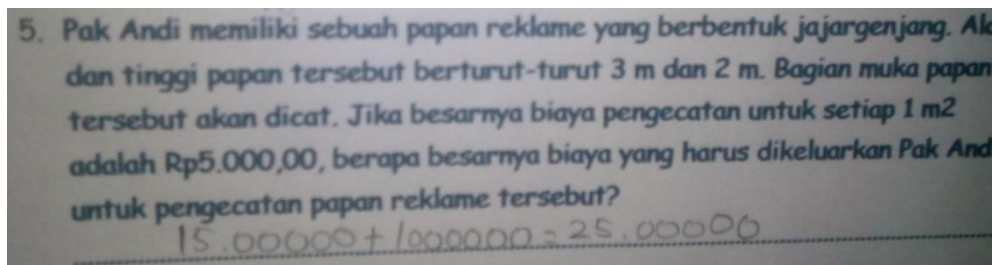 5. Pak Andi memiliki sebuah papan reklame yang berbentuk jajargenjang.
dan tinggi papan tersebut berturut-turut 3 m dan 2 m. Bagian muka papan
tersebut akan dicat. Jika besarnya biaya pengecatan untuk setiap 1 m2
adalah Rp5.000,00, berapa besarnya biaya yang harus dikeluarkan Pak And
untuk pengecatan papan reklame tersebut?
15.00000+1000000=25.00000